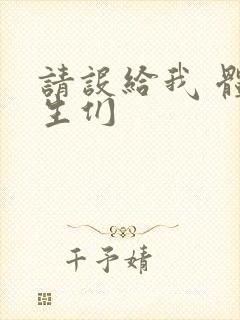 請設給我 體
生们
千予婧